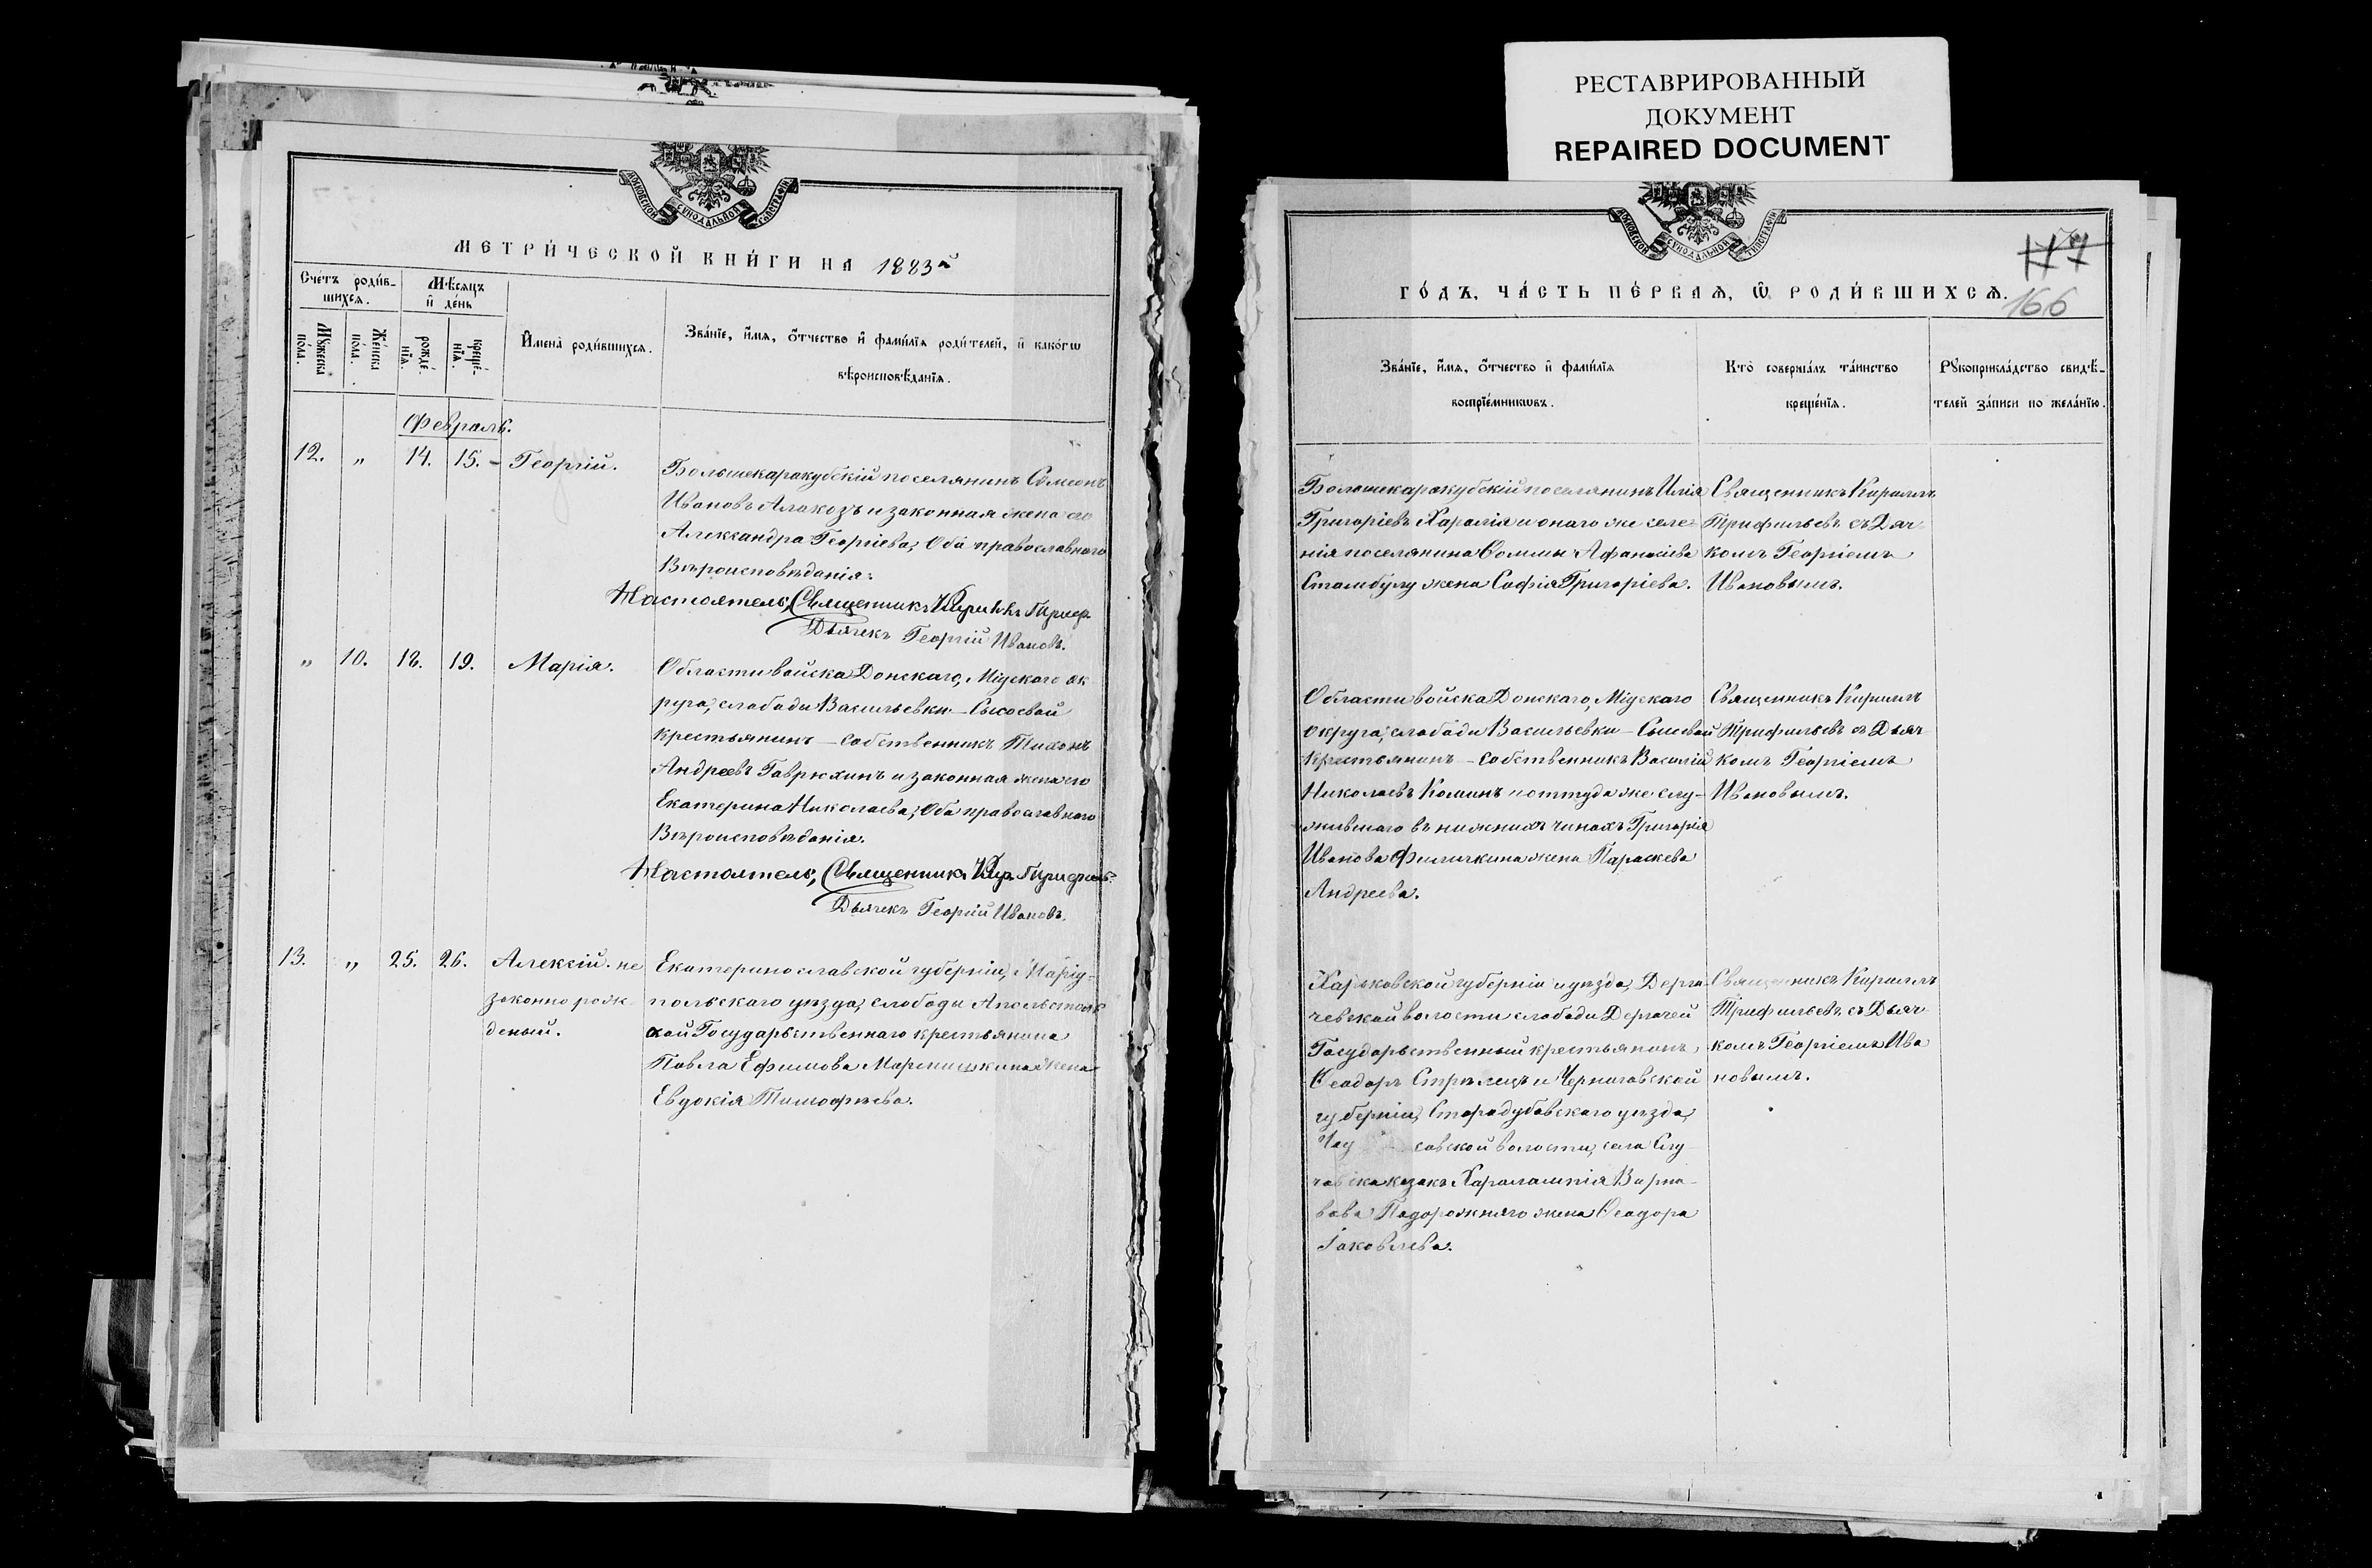 РЕСТАВРИРОВАННЫЙ
ДОКУМЕНТ
REPAIRED DOCUMENT
МОСКОВСКОЙ СѴНОДАЛЬНОЙ ТИПОГРАФІИ
МЕТРИ́ЧЕСКОЙ КНИ́ГИ НА 1883й
Сче́тъ роди́в-
шихся.
Мѣ́сяцъ
и де́нь
Мꙋ́жеска
по́ла.
Же́нска
по́ла.
рожде́-
нїѧ.
креще́-
нїѧ.
Имена̀ роди́вшихся.
Зва́нїе, и́мѧ, о́тчество и фами́лїѧ роди́телей, и како́гѡ
вѣроисповѣ́данїѧ.
Февраль.
12. „ 14. 15. - Георгій.
Большекаракубскій поселянинъ Сѵмеонъ
Ивановъ Алакозъ и законная жена его
Александра Георгіева; Оба православнаго
Вѣроисповѣданія.
Настоятель, Священникъ
Дьячекъ Георгій Ивановъ.
„ 10. 18. 19. Марія.
Области войска Донскаго, Міускаго ок
руга, слободы Васильевки-Сысоевой
крестьянинъ-собственникъ Тихонъ
Андреевъ Гаврюхинъ и законная жена его
Екатерина Николаева; Оба православнаго
Вѣроисповѣданія.
Настоятель, Священникъ Кир. Трифильевъ
Дьячекъ Георгій Ивановъ.
13. „ 25. 26. Алексій. не
законно рож-
деный.
Екатеринославской губерніи, Маріу-
польскаго уѣзда, слободы Апольстоль
ской Государственнаго крестьянина
Павла Ефимова жена
Евдокія Тимофѣева.
ГО́ДЪ, ЧА́СТЬ ПЕ́РВАѦ, Ѡ РОДИ́ВШИХСѦ.
177
166
Зва́нїе, и́мѧ, о́тчество и фами́лїѧ
воспрїе́мникѡвъ.
Кто̀ соверша́лъ та́инство
креще́нїѧ.
Рꙋкоприкла́дство свидѣ́-
телей за́писи по жела́нїю.
Большекаракубскій поселянинъ Илія
Григоріевъ Харалія и онаго же селе-
нія поселянина Ѳомы Афанасіева
Стамбулу жена Софія Григоріева.
Священникъ Кириллъ
Трифильевъ съ Дьяч
комъ Георгіемъ
Ивановымъ.
Области войска Донскаго, Міускаго
округа, слободы Васильевки-Сысоевой
Крестьянинъ-собственникъ Василій
Николаевъ Коминъ и оттуда же слу-
жившаго въ нижнихъ чинахъ Григорія
Иванова Филичкина жена Параскева
Андреева.
Священникъ Кириллъ
Трифильевъ съ Дьяч
комъ Георгіемъ
Ивановымъ.
Харьковской губерніи и уѣзда, Дерга
чевской волости слободы Дергачей
Государственный крестьянинъ
Ѳеодоръ Стрѣлецъ и Черниговской
губерніи, Стародубовскаго уѣзда,
совской волости, села Слу
козакъ Харалампія Варна-
вова Подорожняго жена Ѳеодора
Іаковлева.
Священникъ Кириллъ
Трифильевъ съ Дьяч
комъ Георгіемъ Ива
новымъ.